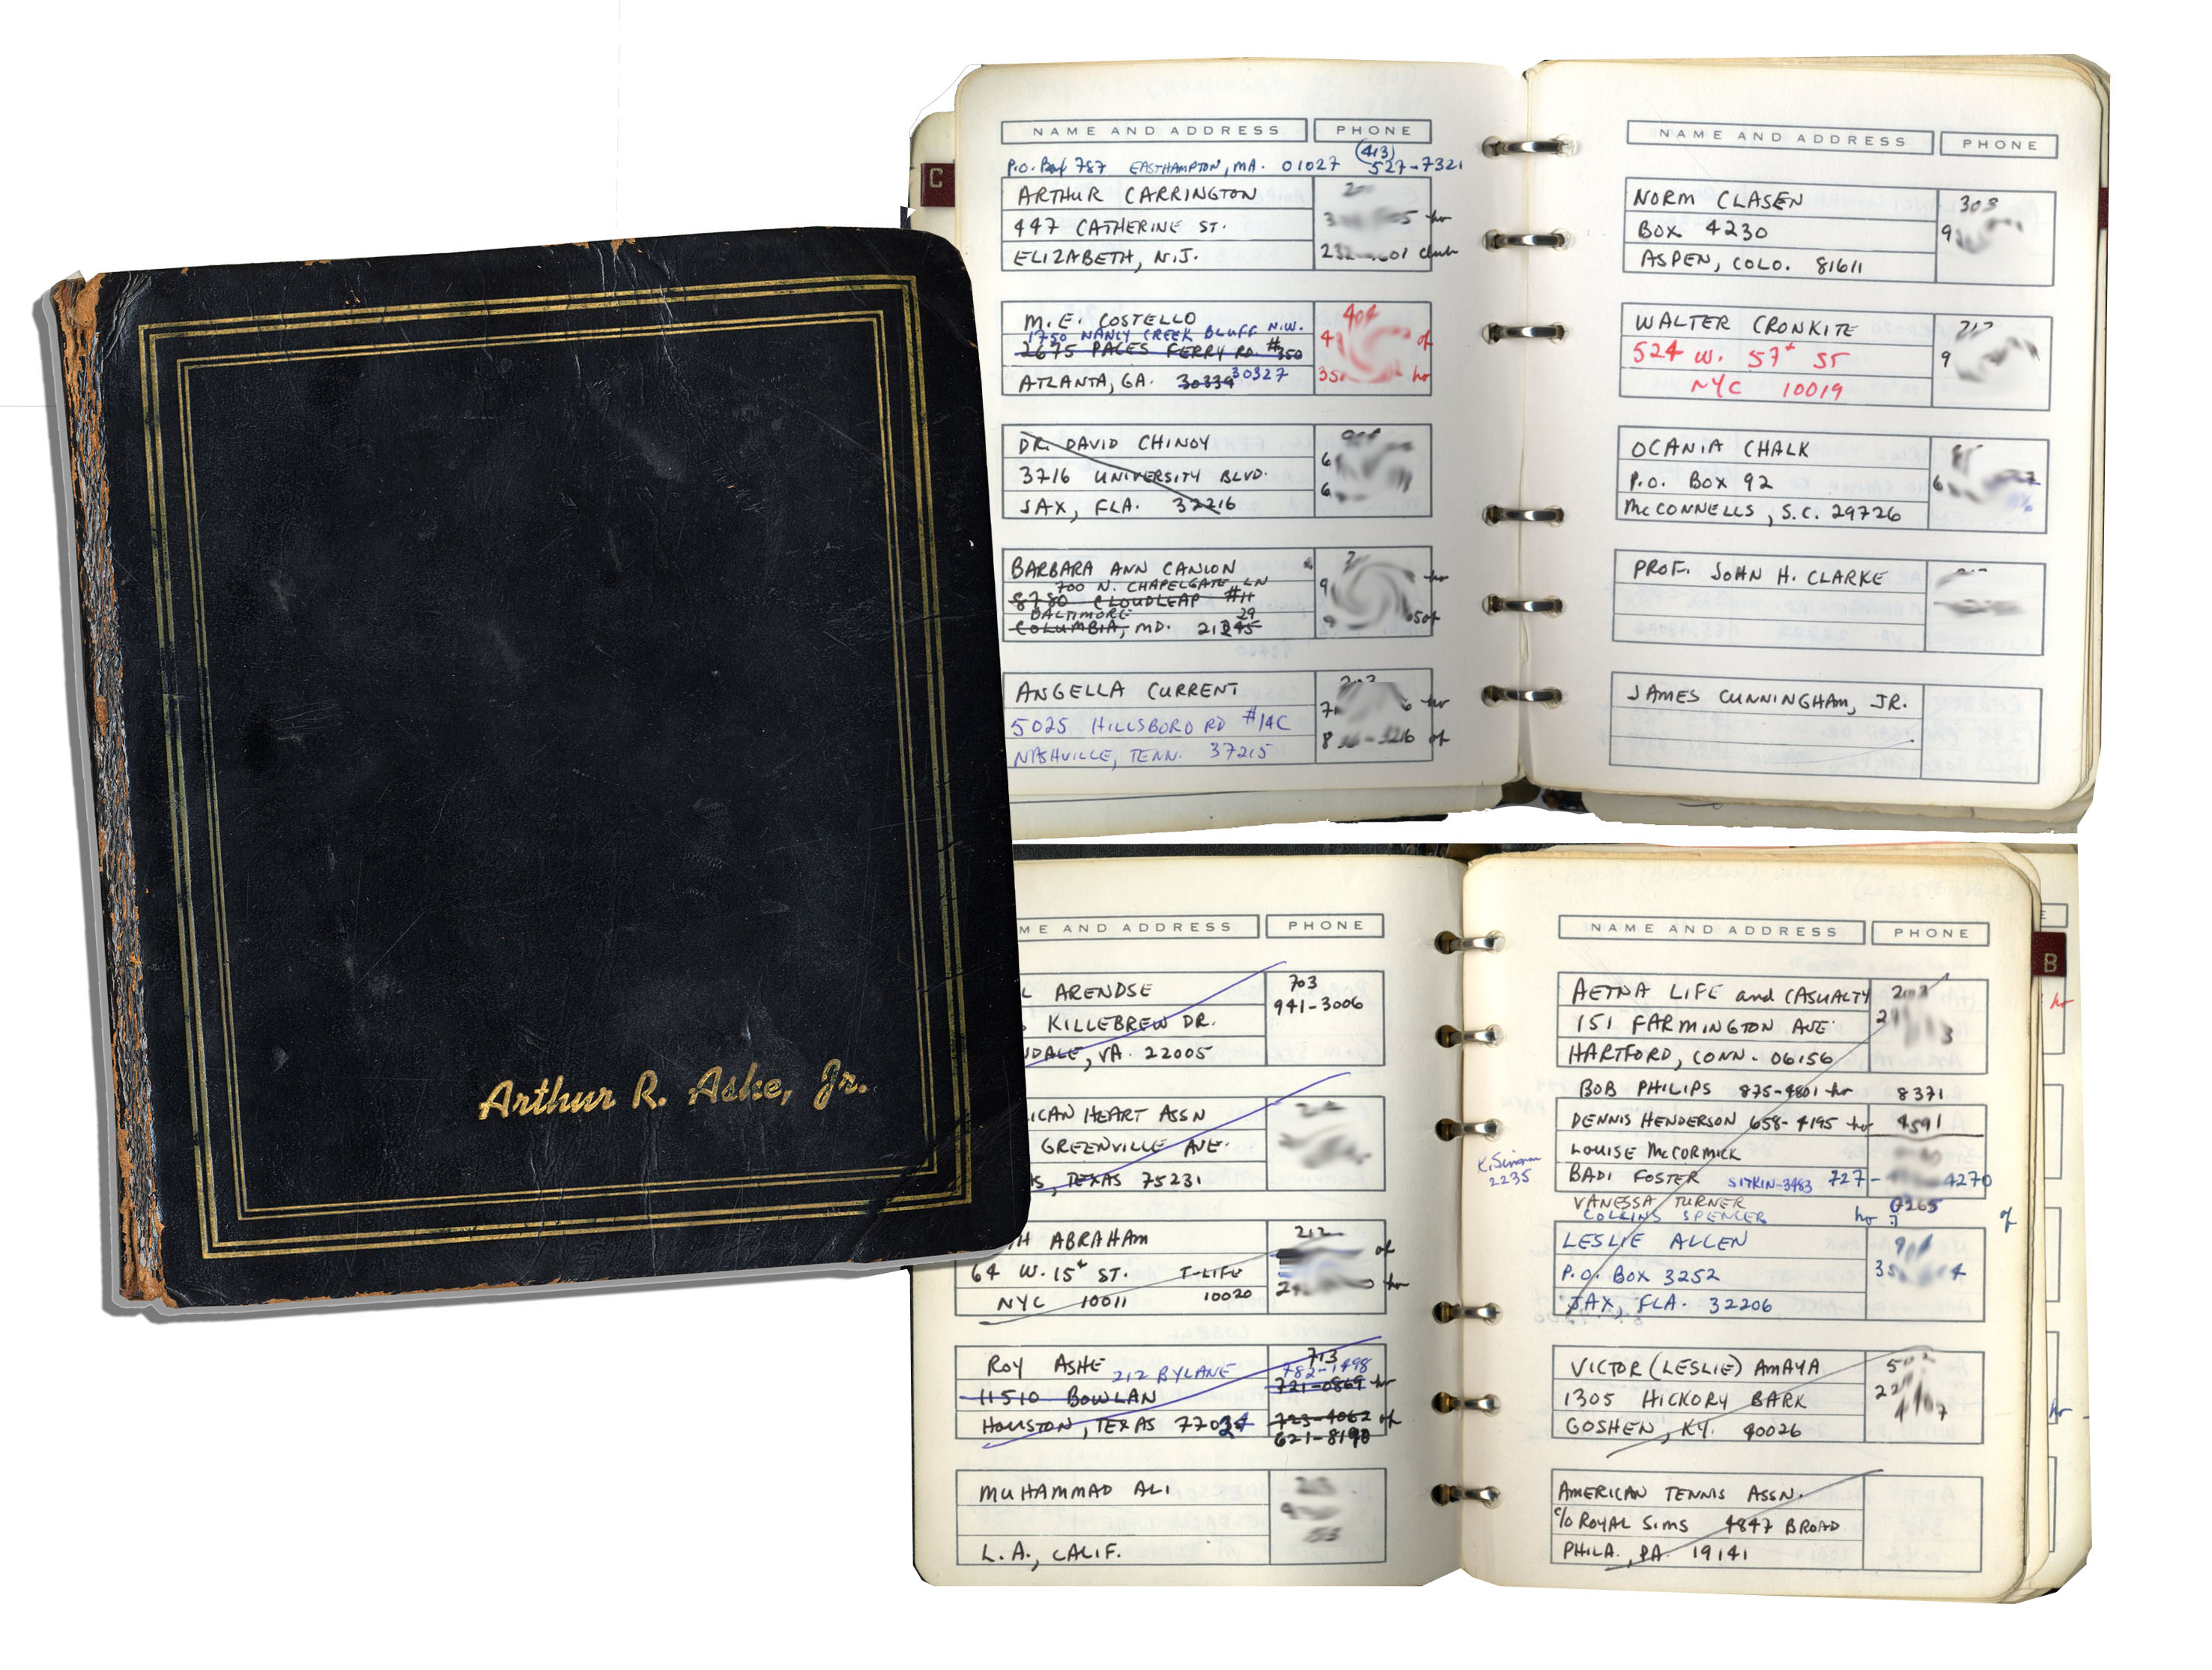 Arthur R. Ashe, Jr.
C
NAME AND ADDRESS PHONE
P.O. Box 787 EASTHAMPTON, MA. 01027 (413) 527-7321
ARTHUR CARRINGTON
447 CATHERINE ST. ho
ELIZABETH, N.J. club
M.E. COSTELLO 404
1750 NANCY CREEK BLUFF N.W.
2675 PACES FERRY RD. #350 of
ATLANTA, GA. 30339 30327 ho
DR. DAVID CHINOY
3716 UNIVERSITY BLVD.
JAX, FLA. 32216
BARBARA ANN CANION
700 N. CHAPELGATE LN ho
8780 CLOUDLEAP #11
BALTIMORE 29
COLUMBIA, MD. 21245 of
ANGELLA CURRENT
5025 HILLSBORO RD #14C ho
NASHVILLE, TENN. 37215 of
NAME AND ADDRESS PHONE
NORM CLASEN 303
BOX 4230
ASPEN, COLO. 81611
WALTER CRONKITE 212
524 W. 57th ST
NYC 10019
OCANIA CHALK
P.O. BOX 92
McCONNELLS, S.C. 29726
PROF. JOHN H. CLARKE
JAMES CUNNINGHAM, JR.
ME AND ADDRESS PHONE
L ARENDSE 703
KILLEBREW DR. 941-3006
NDALE, VA. 22005
ICAN HEART ASSN
GREENVILLE AVE.
S, TEXAS 75231
H ABRAHAM 212
64 W. 15th ST. T-LIFE of
NYC 10011 10020 ho
ROY ASHE 212 BYLANE 713
782-1498
11510 BOWLAN 721-0869 ho
HOUSTON, TEXAS 77024 723-4062 of
621-8190
MUHAMMAD ALI
L.A., CALIF.
NAME AND ADDRESS PHONE
B
AETNA LIFE and CASUALTY 203
151 FARMINGTON AVE.
HARTFORD, CONN. 06156
BOB PHILIPS 875-4801 ho 8371
DENNIS HENDERSON 658-4195 ho 4591
LOUISE McCORMICK
2235
BADI FOSTER SITKIN-3483 727- 4270
VANESSA TURNER 0265
COLLINS SPENCER ho of
LESLIE ALLEN
P.O. BOX 3252
JAX, FLA. 32206
VICTOR (LESLIE) AMAYA
1305 HICKORY BARK
GOSHEN, KY. 40026
AMERICAN TENNIS ASSN.
c/o ROYAL SIMS 4847 BROAD
PHILA., PA. 19141